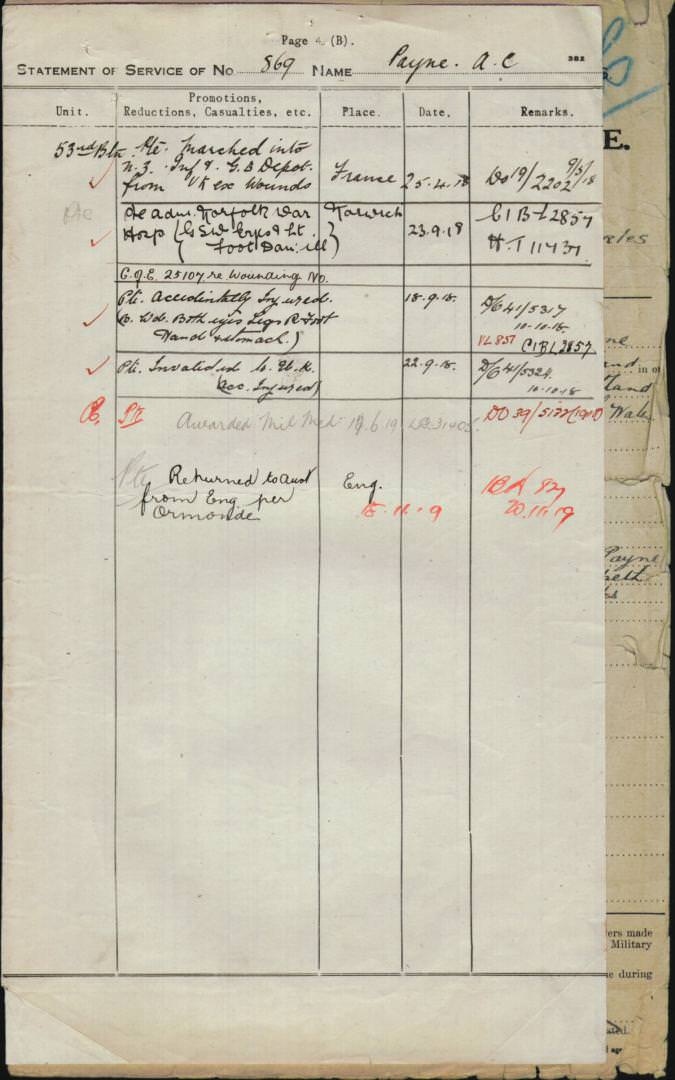 Page 4 (B).
STATEMENT OF SERVICE OF No 869 NAME Payne. A. C
Unit. Promotions, Reductions, Casualties, etc. Place. Date. Remarks.
53rd Btn Pte. Marched into
N.Z. Inf & G.B Depot.
from UK ex Wounds France 25.4.18 Do 19/2202 9/5/18
Pte Pte adm. Norfolk War Norwich C1BL2857
Hosp (G.S.W. & Lt. 23.9.18 H.T 11437
Foot Dan. ill)
25107 re Wounding No.
Pte. Accidentally Injured. 18.9.18. 41/5317
10-10-18.
Wd. Both eyes Legs R Foot
Hand & stomach.) C1BL2857
Pte. Invalided to U.K. 22.9.18. 41/5324
(Acc. Injured) 10-10-18
Pte Awarded Mil Med 6.19 DO 39/5132
Pte Returned to Aust Eng.
from Eng per 15.11.19 20.11.19
Ormonde
E.
Payne
beth
in
Wales
ers made
Military
e during